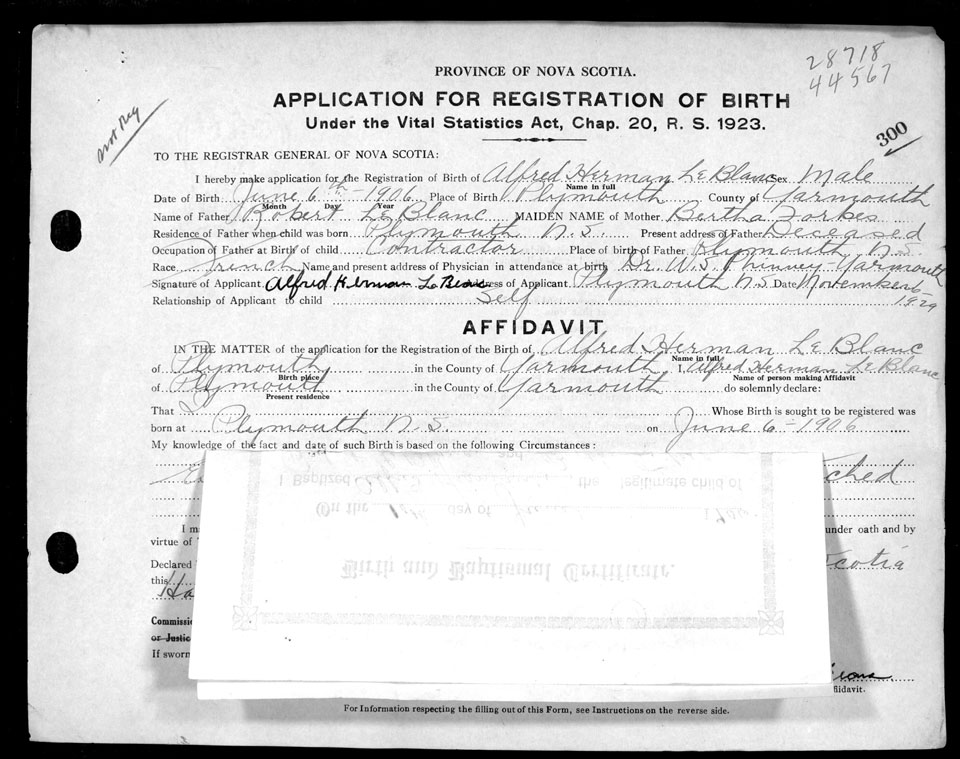 28718
44567
PROVINCE OF NOVA SCOTIA.
APPLICATION FOR REGISTRATION OF BIRTH
Under the Vital Statistics Act, Chap. 20, R. S. 1923.
Not Reg
300
TO THE REGISTRAR GENERAL OF NOVA SCOTIA:
I hereby make application for the Registration of Birth of Alfred Herman Le Blanc Sex Male
Name in full
Date of Birth June 6th - 1906 Place of Birth Plymouth County of Yarmouth
Month Day Year
Name of Father Robert Le Blanc MAIDEN NAME of Mother Bertha Forbes
Residence of Father when child was born Plymouth N.S. Present address of Father Deceased
Occupation of Father at Birth of child Contractor Place of birth of Father Plymouth N.S.
Race French Name and present address of Physician in attendance at birth Dr. W.S. Phinney Yarmouth
Signature of Applicant Alfred Herman Le Blanc Address of Applicant Plymouth N.S Date November 6-
1929
Relationship of Applicant to child Self
AFFIDAVIT
IN THE MATTER of the application for the Registration of the Birth of Alfred Herman Le Blanc
Name in full
of Plymouth in the County of Yarmouth I, Alfred Herman Le Blanc
Birth place Name of person making Affidavit
of Plymouth in the County of Yarmouth do solemnly declare:
Present residence
That I Whose Birth is sought to be registered was
born at Plymouth N.S. on June 6 - 1906
My knowledge of the fact and date of such Birth is based on the following Circumstances:
ched
I Baptized the legitimate child of
On the day of
Birth and Baptismal Certificate.
I m under oath and by
virtue of
Declared Scotia
this
Ha
Commissi
or Justic
If sworn
ffidavit.
For Information respecting the filling out of this Form, see Instructions on the reverse side.